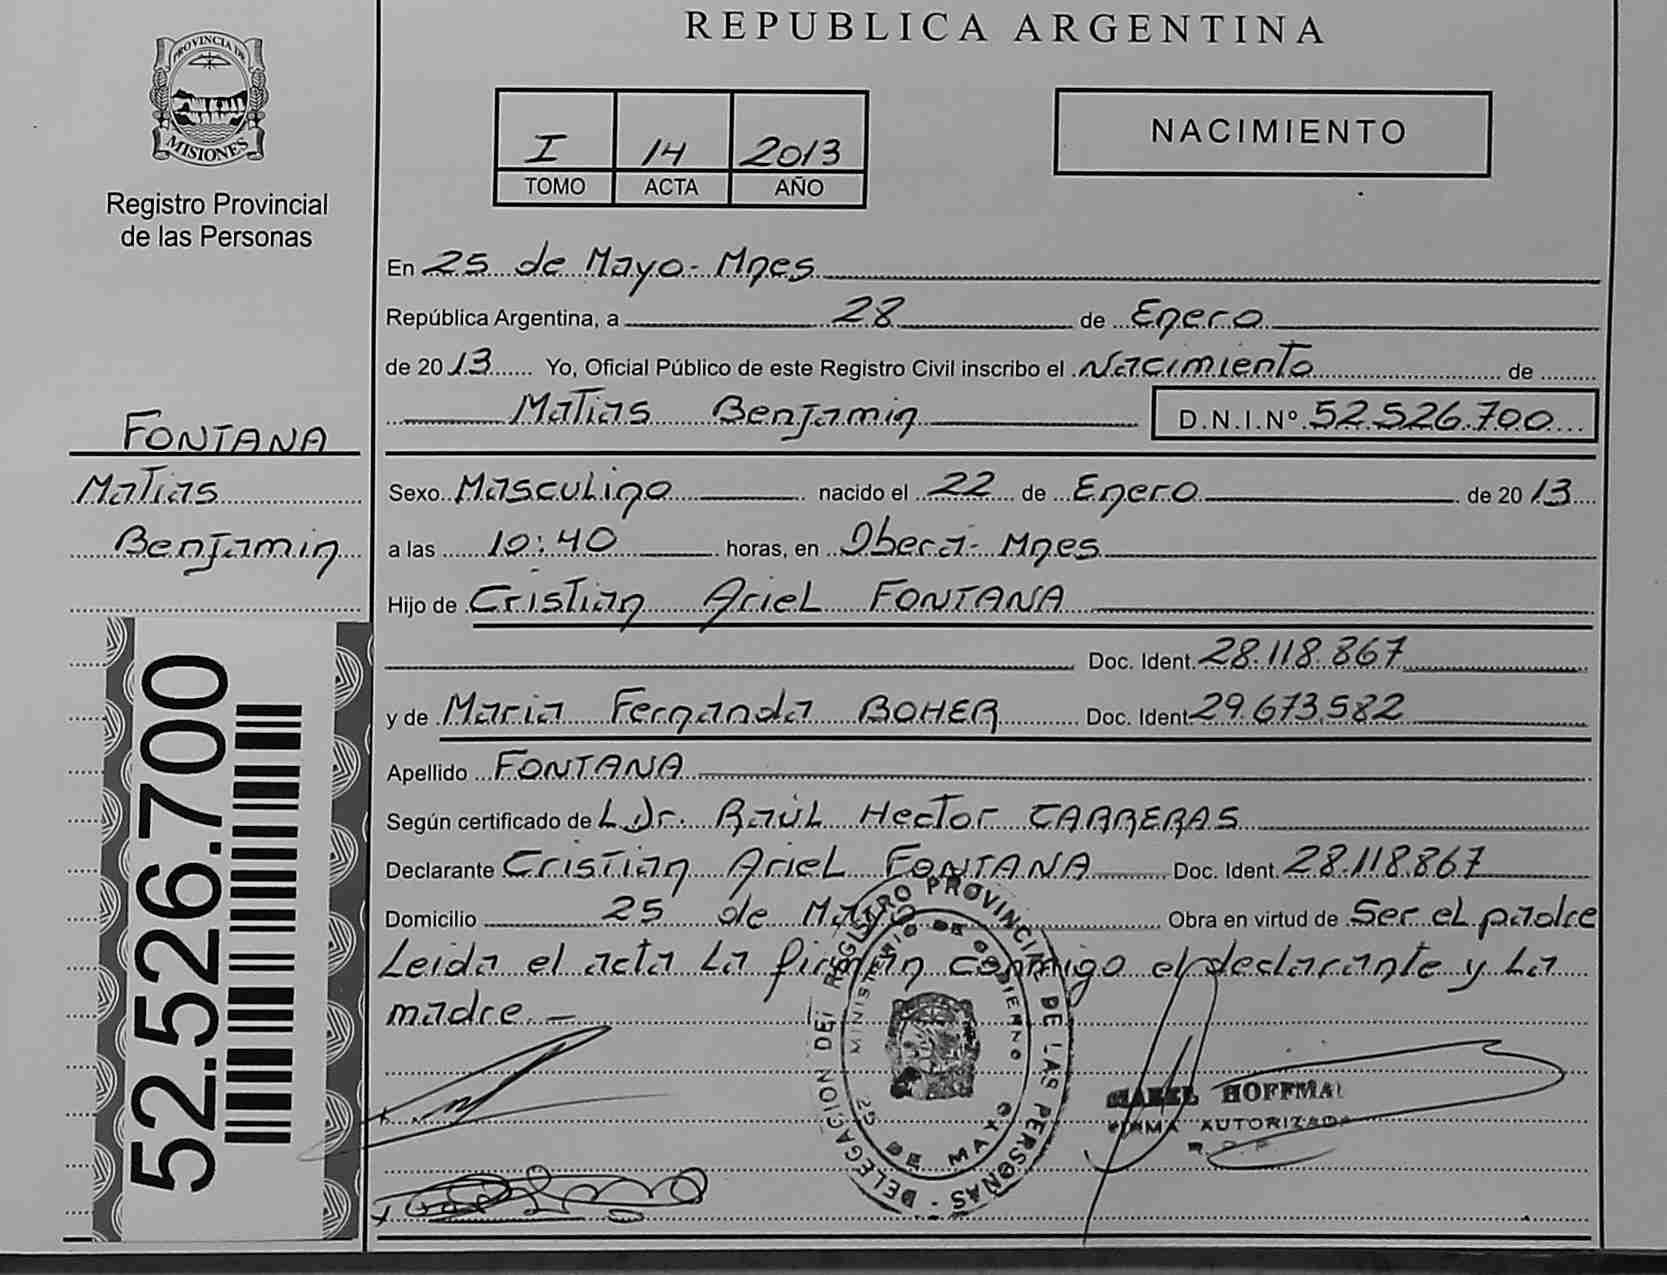 REPUBLICA ARGENTINA
PROVINCIA DE
MISIONES
Registro Provincial
de las Personas
I 14 2013
TOMO ACTA AÑO
NACIMIENTO
En 25 de Mayo - Mnes
República Argentina, a 28 de Enero
de 2013 Yo, Oficial Público de este Registro Civil inscribo el Nacimiento de
Matias Benjamin D.N.I.Nº 52.526.700
FONTANA
Matias
Benjamin
Sexo Masculino nacido el 22 de Enero de 2013
a las 10:40 horas, en Oberá - Mnes
Hijo de Cristian Ariel FONTANA
Doc. Ident. 28.118.867
y de Maria Fernanda BOHER Doc. Ident. 29.673.582
Apellido FONTANA
Según certificado de L.Dr. Raúl Hector CARRERAS
Declarante Cristian Ariel FONTANA Doc. Ident. 28.118.867
Domicilio 25 de Mayo Obra en virtud de Ser el padre
Leida el acta La firman conmigo el declarante y La
madre. —
52.526.700
DELEGACION DEL REGISTRO PROVINCIAL DE LAS PERSONAS
MINISTERIO DE GOBIERNO
25 DE MAYO
HOFFMAN
FIRMA AUTORIZADA